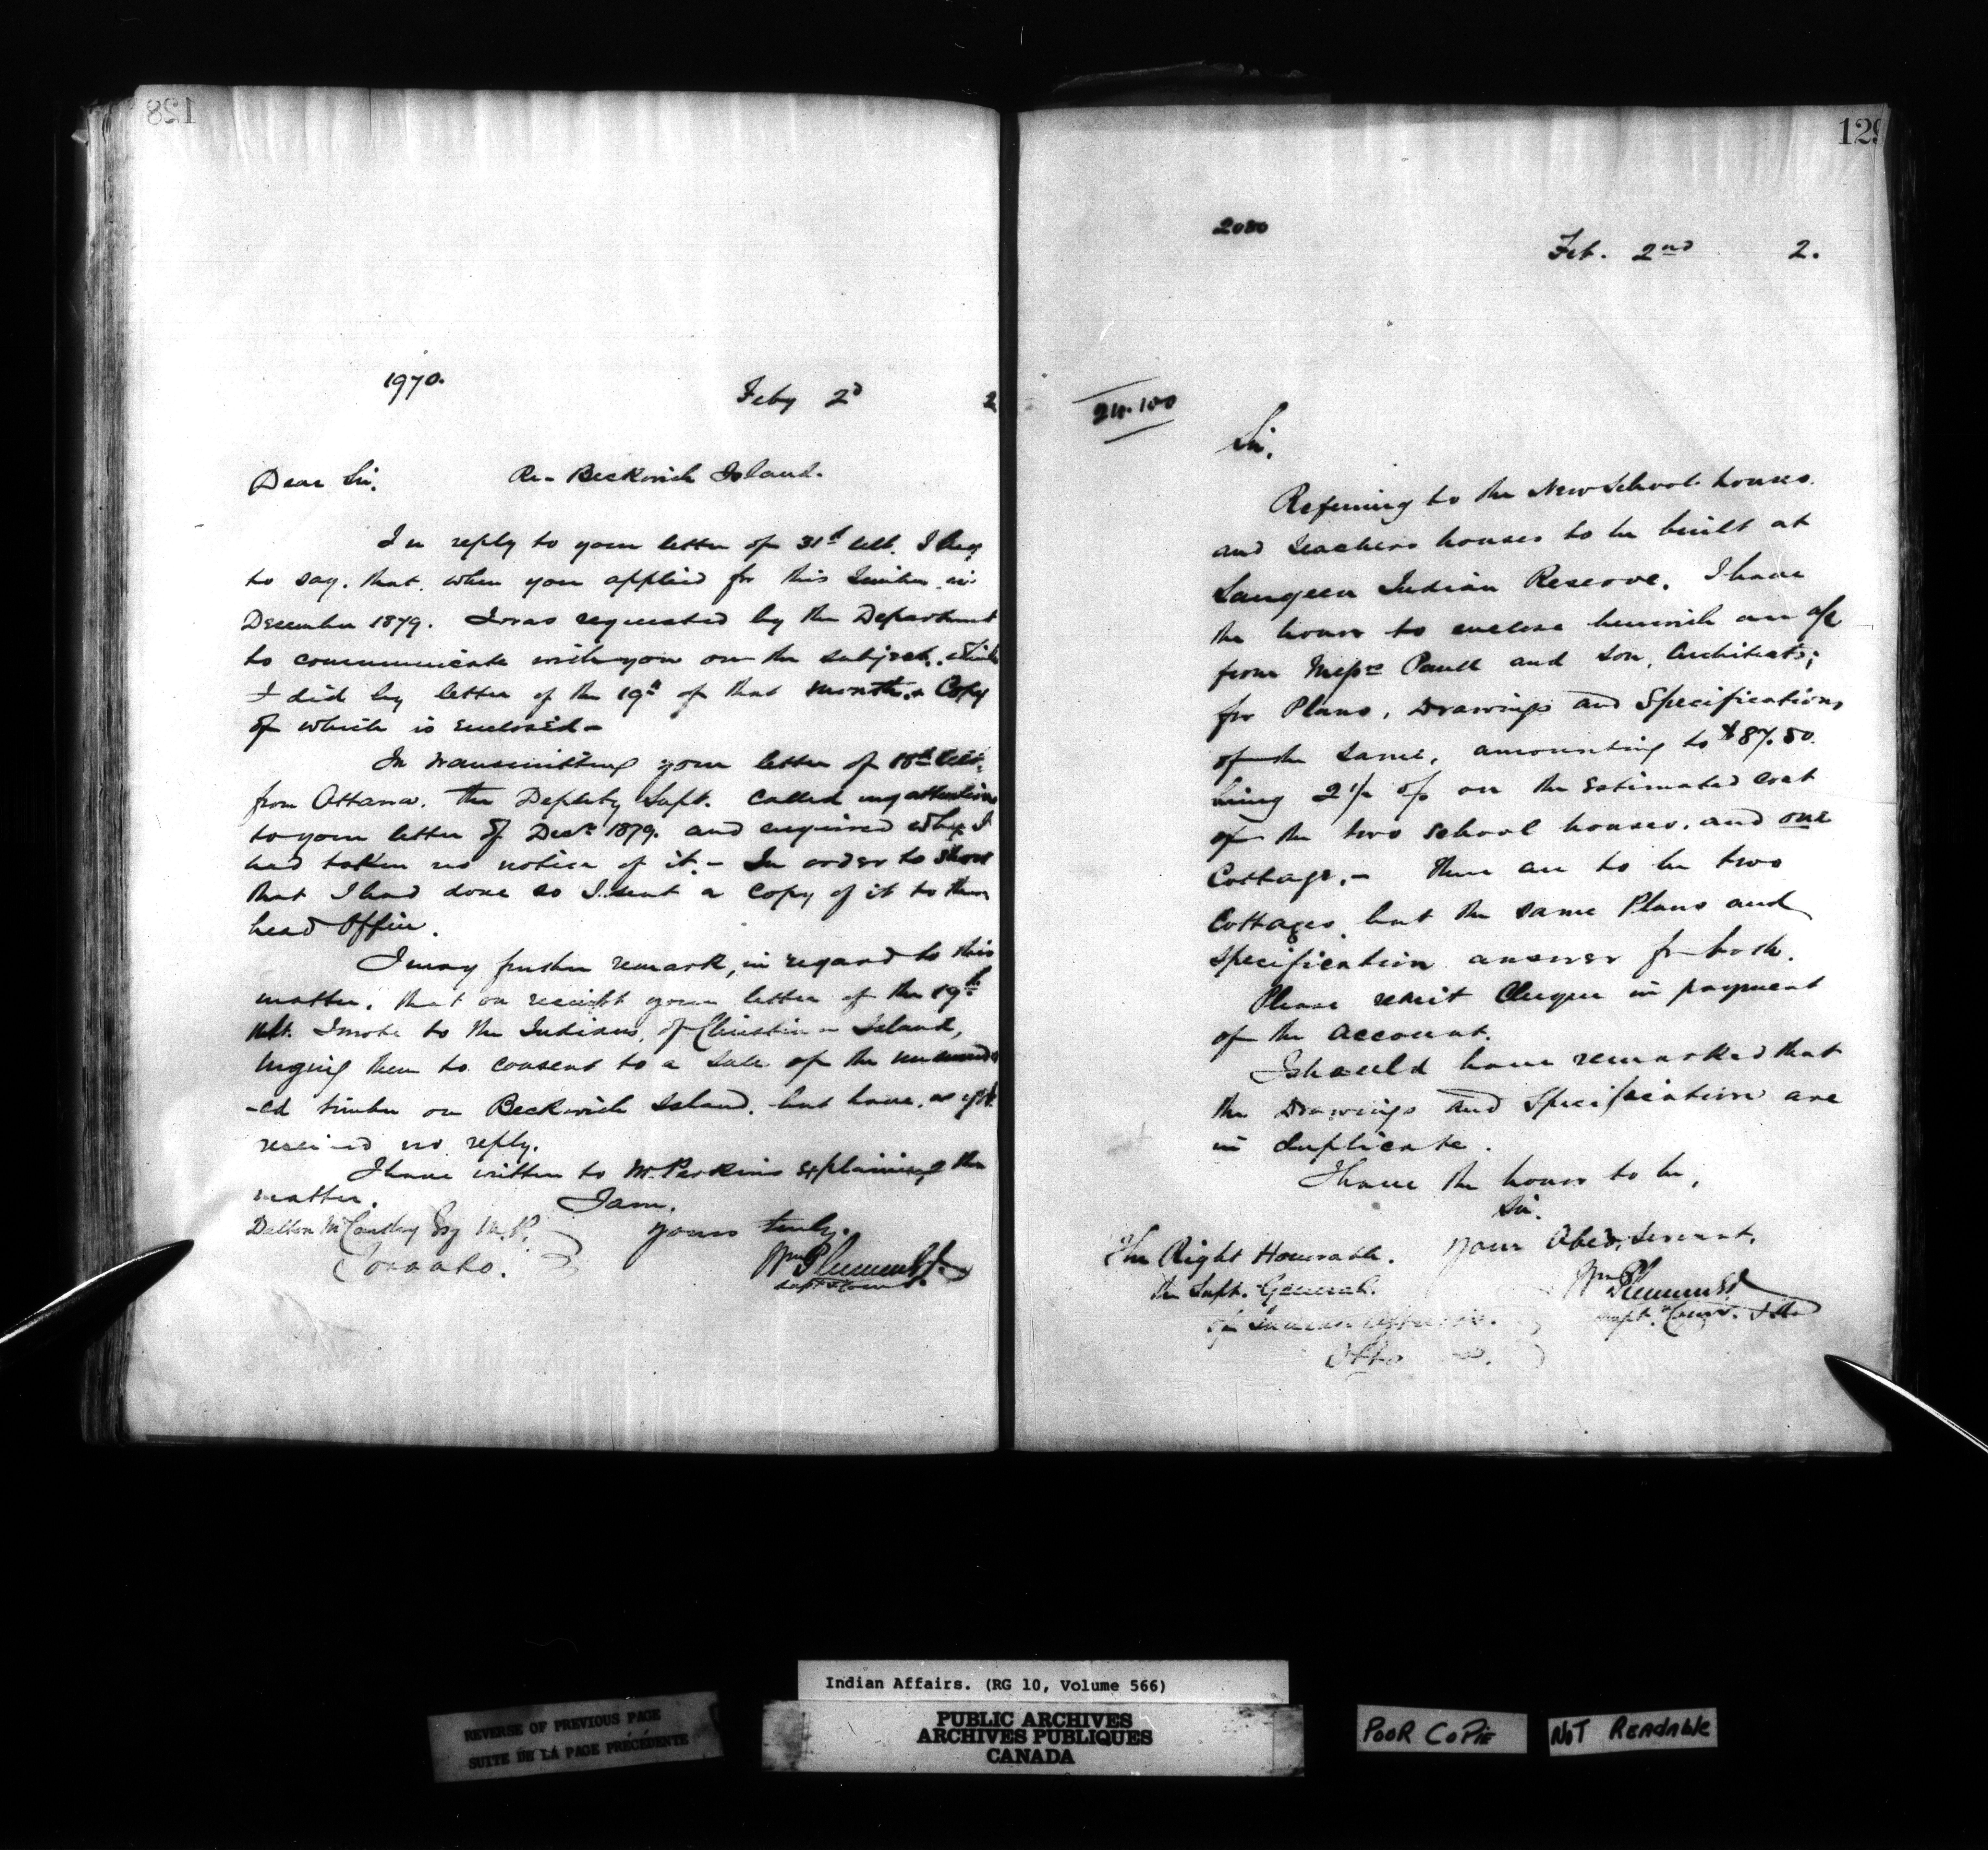 128
1970.
Feby 2d 2
Dear Sir, Re- Beckwith Island.
In reply to your letter of 31st ult. I beg
to say, that, when you applied for this timber in
December 1879. I was requested by the Department
to communicate with you on the subject, which
I did by letter of the 19th of that month, a Copy
of which is enclosed-
In transmitting your letter of 18th ult.
from Ottawa. the Deputy Supt. called my attention
to your letter of Decr 1879. and enquired why I
had taken no notice of it.- In order to show
that I had done so I sent a copy of it to the
head Office.
I may further remark, in regard to this
matter, that on receipt your letter of the 19th
ult. I wrote to the Indians, of Christian Island,
urging them to consent to a sale of the
-ed timber on Beckwith Island, but have, as yet
received no reply.
I have written to Mr. Perkins explaining the
matter. I am,
Dalton McCarthy Esq M.P. yours truly,
Toronto. Wm Plummer
Supt & Comr.
129
2080
Feb. 2nd 2.
24.100
Sir,
Referring to the New School houses
and teachers houses to be built at
Saugeen Indian Reserve, I have
the honor to enclose herewith an a/c
from Messrs Paull and Son, Architects;
for Plans, Drawings and Specifications
of the same, amounting to $87.50.
being 2 1/2 % on the estimated cost
of the two School houses, and one
Cottage,- there are to be two
Cottages, but the same Plans and
specification answer for both.
Please remit Cheque in payment
of the account.
I should have remarked that
the Drawings and Specification are
in duplicate.
I have the honor to be,
Sir,
The Right Honorable. your Obed. Servant,
the Supt. General. Wm Plummer
of Indian Affairs. Supt. & Comr.
Indian Affairs. (RG 10, Volume 566)
REVERSE OF PREVIOUS PAGE
SUITE DE LA PAGE PRÉCÉDENTE
PUBLIC ARCHIVES
ARCHIVES PUBLIQUES
CANADA
POOR COPIE
NOT READABLE